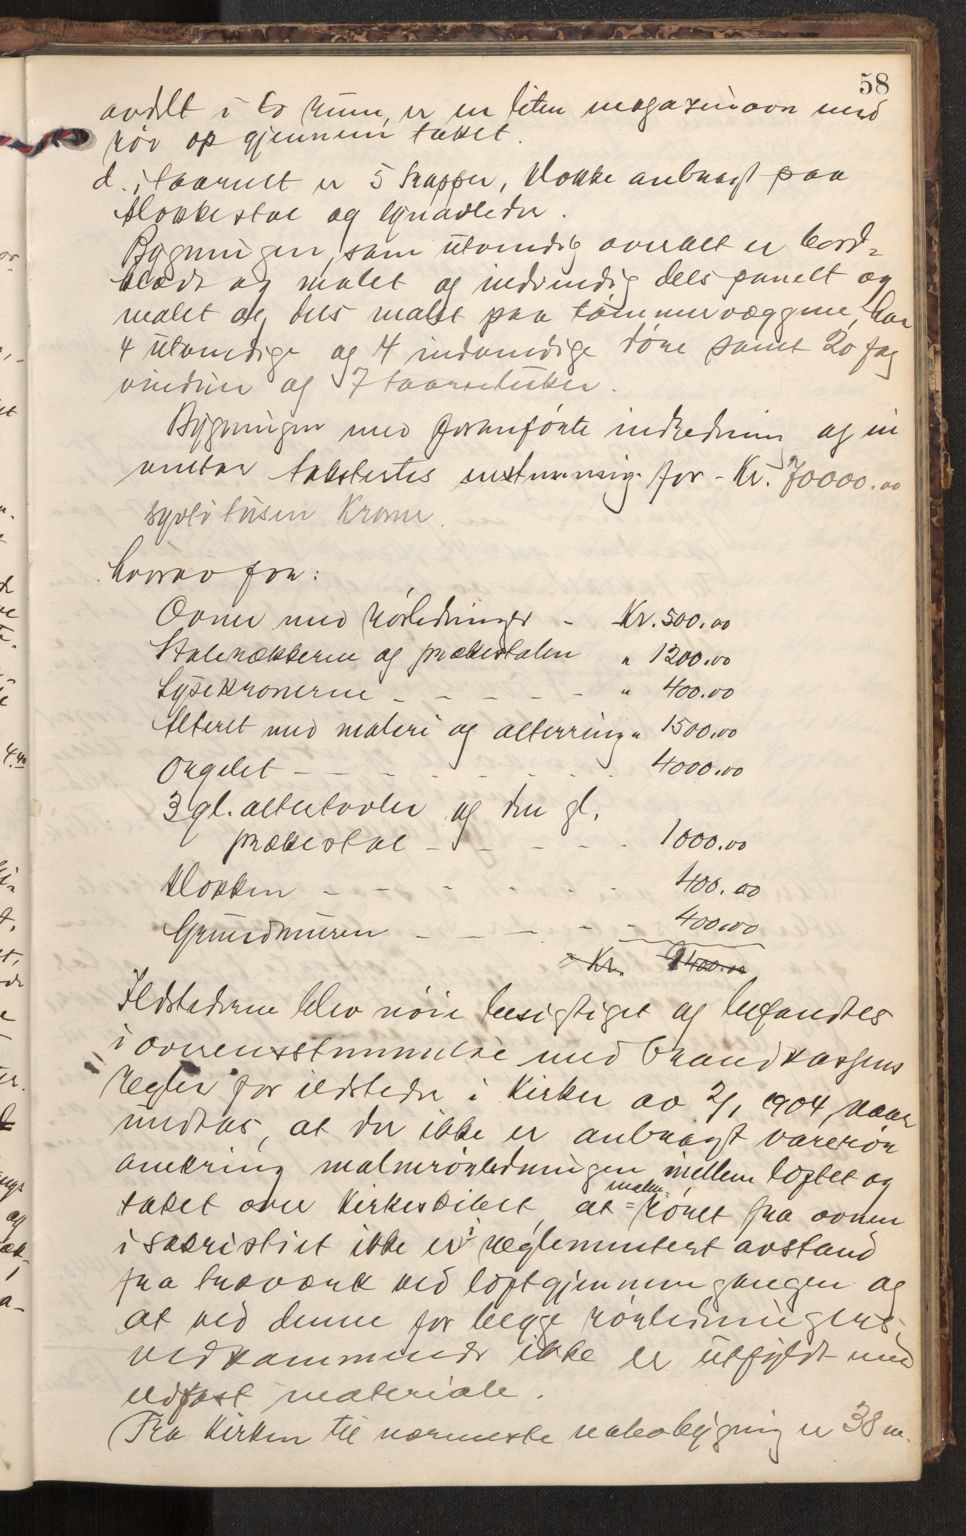 58
avdelt i to rum, er en liten magasinovn med
rør op gjennem taket.
d. i taarnet er 5 trapper, klokke anbragt paa
klokkestol og lynavleder.
Bygningen, som utvendig overalt er bord-
klædt og malet og indvendig dels panelt og
malet og dels malet paa tømmervæggene, har
4 utvendige og 4 indvendige døre samt 20 fag
vinduer og 7 taarnluker.
Bygningen med foranførte indredning og in
ventar takstertes enstemmig for - Kr. 70000.00
sytti tusen Kroner.
hvorav for:
Ovner med rørledninger - Kr. 500.00
Stolerækkerne og prækestolen " 1200.00
Lysekronerne - - - - - " 400.00
Alteret med maleri og alterring " 1500.00
Orgelet - - - - - - - 4000.00
3 gl. altertavler og den gl.
prækestol - - - - - 1000.00
Klokken - - - - - - 400.00
Grundmuren - - - - - 400.00
Kr. 9400.00
Ildstederne blev nøie besigtiget og befandtes
i overensstemmelse med Brandkassens
regler for ildsteder i Kirker av 2/1 1904, naar
undtas, at der ikke er anbragt varerør
omkring malmrørledningen mellem loftet og
taket over Kirkeskibet, at malm-
røret fra ovnen
i sakristiet ikke er i reglementert avstand
fra træværk ved loftgjennemgangen og
at ved denne for begge rørledningers
vedkommende ikke er utfyldt med
ildfast materiale.
Fra Kirken til nærmeste nabobygning er 38 m.